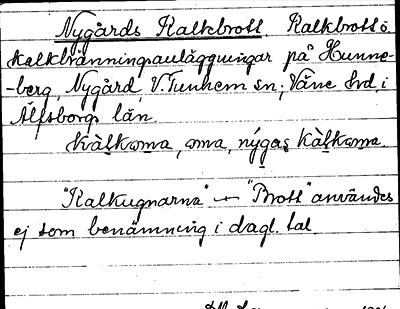 Nygårds Kalkbrott. Kalkbrott o.
kalkbränningsanläggningar på Hunne-
-berg, Nygård, V. Tunhem sn, Väne hd i
Älfsborgs län.
kàlkoma, oma, nýgas kàlkoma.
"Kalkugnarna" — "Brott" användes
ej som benämning i dagl. tal